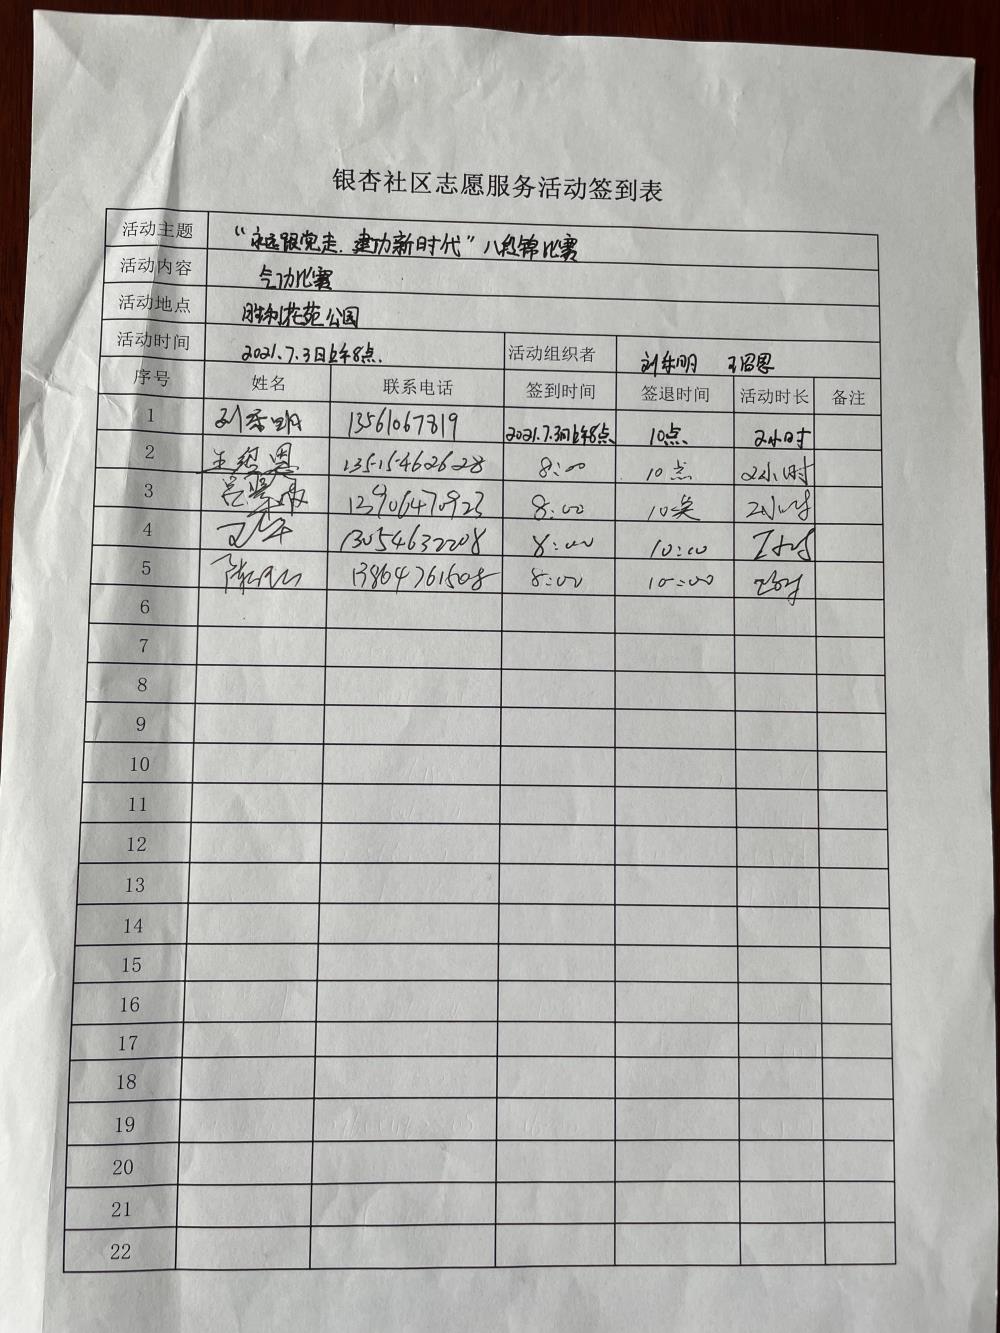 银杏社区志愿服务活动签到表
活动主题 “永远跟党走.建功新时代”八段锦比赛
活动内容 气功比赛
活动地点 胜利花苑公园
活动时间 2021.7.3日上午8点. 活动组织者 刘乐明 王绍恩
序号 姓名 联系电话 签到时间 签退时间 活动时长 备注
1 刘乐明 13561067819 2021.7.3日上午8点 10点. 2小时
2 王绍恩 13515462628 8:00 10点 2小时
3 13906470923 8:00 10点 2小时
4 13054632208 8:00 10:00 2小时
5 13864761508 8:00 10:00 2小时
6
7
8
9
10
11
12
13
14
15
16
17
18
19
20
21
22